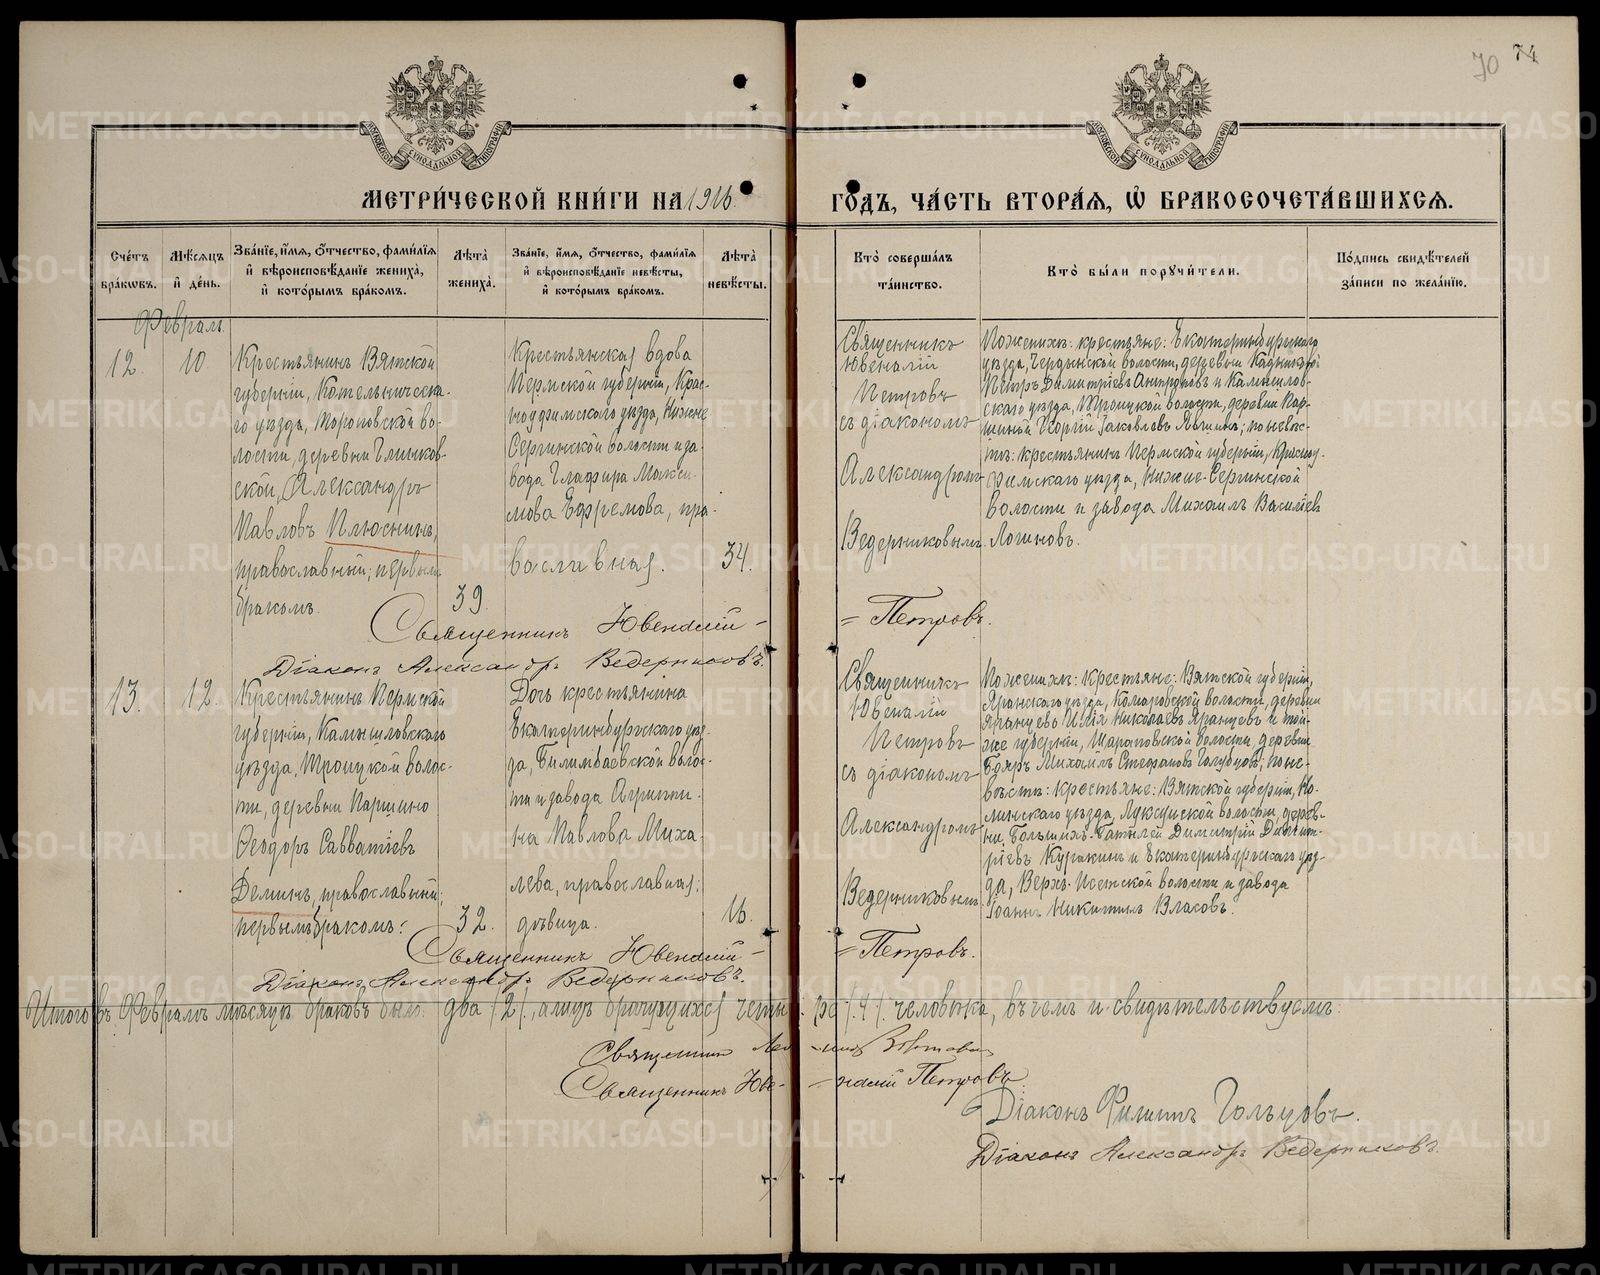 70 74
МОСКОВСКОЙ СУНОДАЛЬНОЙ ТИПОГРАФІИ
МОСКОВСКОЙ СУНОДАЛЬНОЙ ТИПОГРАФІИ
МЕТРИ́ЧЕСКОЙ КНИ́ГИ НА 1916 ГО́ДЪ, ЧА́СТЬ ВТОРА́Я, Ѡ БРАКОСОЧЕТА́ВШИХСЯ.
Сче́тъ бра́кωвъ.
Мѣ́сяцъ и́ де́нь.
Зва́нїе, и́мя, о́тчество, фами́лїя и́ вѣроисповѣ́данїе жениха̀, и́ кото́рымъ бра́комъ.
Лѣ́та̀ жениха̀.
Зва́нїе, и́мя, о́тчество, фами́лїя и́ вѣроисповѣ́данїе невѣ́сты, и́ кото́рымъ бра́комъ.
Лѣ́та̀ невѣ́сты.
Кто̀ соверша́лъ та́инство.
Кто̀ бы́ли поручи́тели.
По́дпись свидѣ́телей за́писи по жела́нїю.
Февраль
12.
10
Крестьянинъ Вятской
губерніи, Котельническа-
го уѣзда, Тороповской во-
лости, деревни Глинков-
ской, Александръ
Павловъ Плюснинъ,
православный; первымъ
бракомъ.
39.
Крестьянская вдова
Пермской губерніи, Крас-
ноуфимскаго уѣзда, Нижне
Сергинской волости и за-
вода Глафира Макси-
мова Ефремова, пра-
вославная.
34.
Священникъ
Ювеналій
Петровъ
съ діакономъ
Александромъ
Ведерниковымъ.
По женихѣ: крестьяне: Екатеринбургскаго
уѣзда, волости, деревни
Петръ Димитріевъ Антроповъ и Камышлов-
скаго уѣзда, Троицкой волости, деревни Пар-
шиной Георгій Іаковлевъ; по невѣс-
тѣ: крестьянинъ Пермской губерніи, Красноу-
фимскаго уѣзда, Нижне-Сергинской
волости и завода Михаилъ Василіевъ
Логиновъ.
Священникъ Ювеналій – = Петровъ.
Діаконъ Александръ Ведерниковъ.
13.
12.
Крестьянинъ Пермской
губерніи, Камышловскаго
уѣзда, Троицкой волос-
ти, деревни Паршино
Ѳеодоръ Савватіевъ
Деминъ, православный;
первымъ бракомъ.
32.
Дочь крестьянина
Екатеринбургскаго уѣз-
да, Билимбаевской волос-
ти и завода Агриппи-
на Павлова Миха-
лева, православная;
дѣвица.
16.
Священникъ
Ювеналій
Петровъ
съ діакономъ
Александромъ
Ведерниковымъ.
По женихѣ: крестьяне: Вятской губерніи,
Яранскаго уѣзда, Комаровской волости, деревни
Яранцево Илія Николаевъ Яранцевъ и той-
же губерніи, Шараповской волости, деревни
Бояръ Михаилъ Стефановъ Голубцовъ; по не-
вѣстѣ: крестьяне: Вятской губерніи, Но-
линскаго уѣзда, волости, дерев-
ни Большихъ Димитрій Димит-
ріевъ Куракинъ и Екатеринбургскаго уѣз-
да, Верхъ-Исетской волости и завода
Іоаннъ Никитинъ Власовъ.
Священникъ Ювеналій – = Петровъ.
Діаконъ Александръ Ведерниковъ.
Итого въ Февралѣ мѣсяцѣ браковъ было: два /2/, а лицъ брачущихся четы-ре /4/ человѣка, въ чемъ и свидѣтельствуемъ:
Священникъ
Священникъ Юве-налій Петровъ
Діаконъ Филиппъ Гольцовъ.
Діаконъ Александръ Ведерниковъ.
METRIKI.GASO-URAL.RU